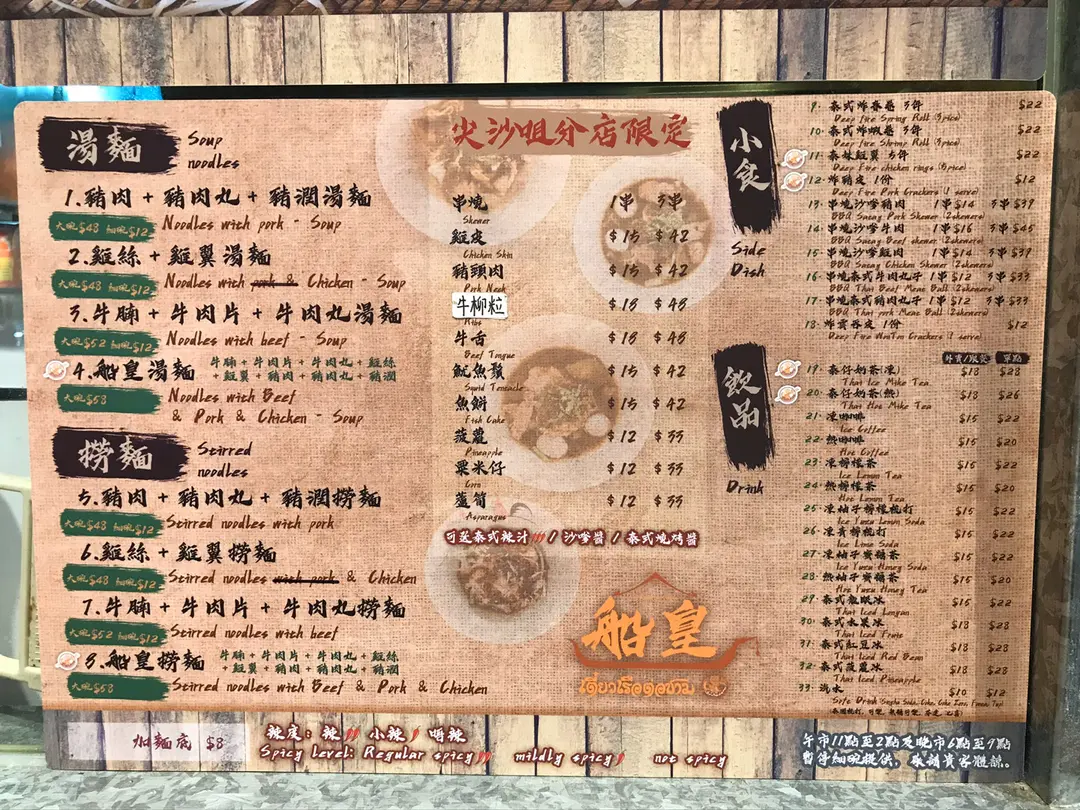 湯麵
Soup
noodles
1.豬肉 + 豬肉丸 + 豬潤湯麵
大碗$48 細碗$12
Noodles with pork - Soup
2.雞絲 + 雞翼湯麵
大碗$48 細碗$12
Noodles with pork & Chicken - Soup
3.牛腩 + 牛肉片 + 牛肉丸湯麵
大碗$52 細碗$12
Noodles with beef - Soup
4.船皇湯麵
牛腩 + 牛肉片 + 牛肉丸 + 雞絲
+ 雞翼 + 豬肉 + 豬肉丸 + 豬潤
大碗$58
Noodles with Beef
& Pork & Chicken - Soup
撈麵
Stirred
noodles
5.豬肉 + 豬肉丸 + 豬潤撈麵
大碗$48 細碗$12
Stirred noodles with pork
6.雞絲 + 雞翼撈麵
大碗$48 細碗$12
Stirred noodles with pork & Chicken
7.牛腩 + 牛肉片 + 牛肉丸撈麵
大碗$52 細碗$12
Stirred noodles with beef
8.船皇撈麵
牛腩 + 牛肉片 + 牛肉丸 + 雞絲
+ 雞翼 + 豬肉 + 豬肉丸 + 豬潤
大碗$58
Stirred noodles with Beef & Pork & Chicken
尖沙咀分店限定
串燒 1串 3串
Skewer
雞皮 $15 $42
Chicken Skin
豬頸肉 $15 $42
Pork Neck
牛柳粒 $18 $48
Ribs
牛舌 $18 $48
Beef Tongue
魷魚鬚 $15 $42
Squid Tentacle
魚餅 $15 $42
Fish Cake
菠蘿 $12 $33
Pineapple
粟米仔 $12 $33
Corn
蘆筍 $12 $33
Asparagus
可選泰式辣汁 / 沙嗲醬 / 泰式燒烤醬
船皇
小食
Side
Dish
9. 泰式炸春卷 3件 $22
Deep fire Spring Roll (3pice)
10. 泰式炸蝦卷 3件 $22
Deep fire Shrimp Roll (3pice)
11. 泰妹雞翼 5件 $22
12. 炸豬皮 1份 $12
Deep Fire Pork Crackers (1 serve)
13. 串燒沙嗲豬肉 1串$14 3串$39
14. 串燒沙嗲牛肉 1串$16 3串$45
15. 串燒沙嗲雞肉 1串$14 3串$39
16. 串燒泰式牛肉丸子 1串$12 3串$33
17. 串燒泰式豬肉丸子 1串$12 3串$33
18. 炸雲吞皮 1份 $12
Deep Fire WonTon Crackers (1 serve)
飲品
Drink
外賣/跟餐 單點
19. 泰仔奶茶(凍) $18 $28
Thai Ice Milk Tea
20. 泰仔奶茶(熱) $18 $26
Thai Hot Milk Tea
21. 凍咖啡 $15 $22
Ice Coffee
22. 熱咖啡 $15 $20
Hot Coffee
23. 凍檸檬茶 $15 $22
Ice Lemon Tea
24. 熱檸檬茶 $15 $20
Hot Lemon Tea
25. 凍柚子檸檬梳打 $15 $22
Ice Yuzu Lemon Soda
26. 凍青檸梳打 $15 $22
Ice Lime Soda
27. 凍柚子蜜糖茶 $15 $22
28. 熱柚子蜜糖茶 $15 $20
29. 泰式龍眼冰 $15 $22
Thai Iced Longan
30. 泰式水果冰 $18 $28
31. 泰式紅豆冰 $18 $28
Thai Iced Red Bean
32. 泰式菠蘿冰 $18 $28
Thai Iced Pineapple
33. 汽水 $10 $12
加麵底 $8
辣度: 辣 小辣 唔辣
Spicy Level: Regular spicy mildly spicy not spicy
午市11點至2點及晚市6點至9點
暫停細碗提供, 敬請貴客體諒。